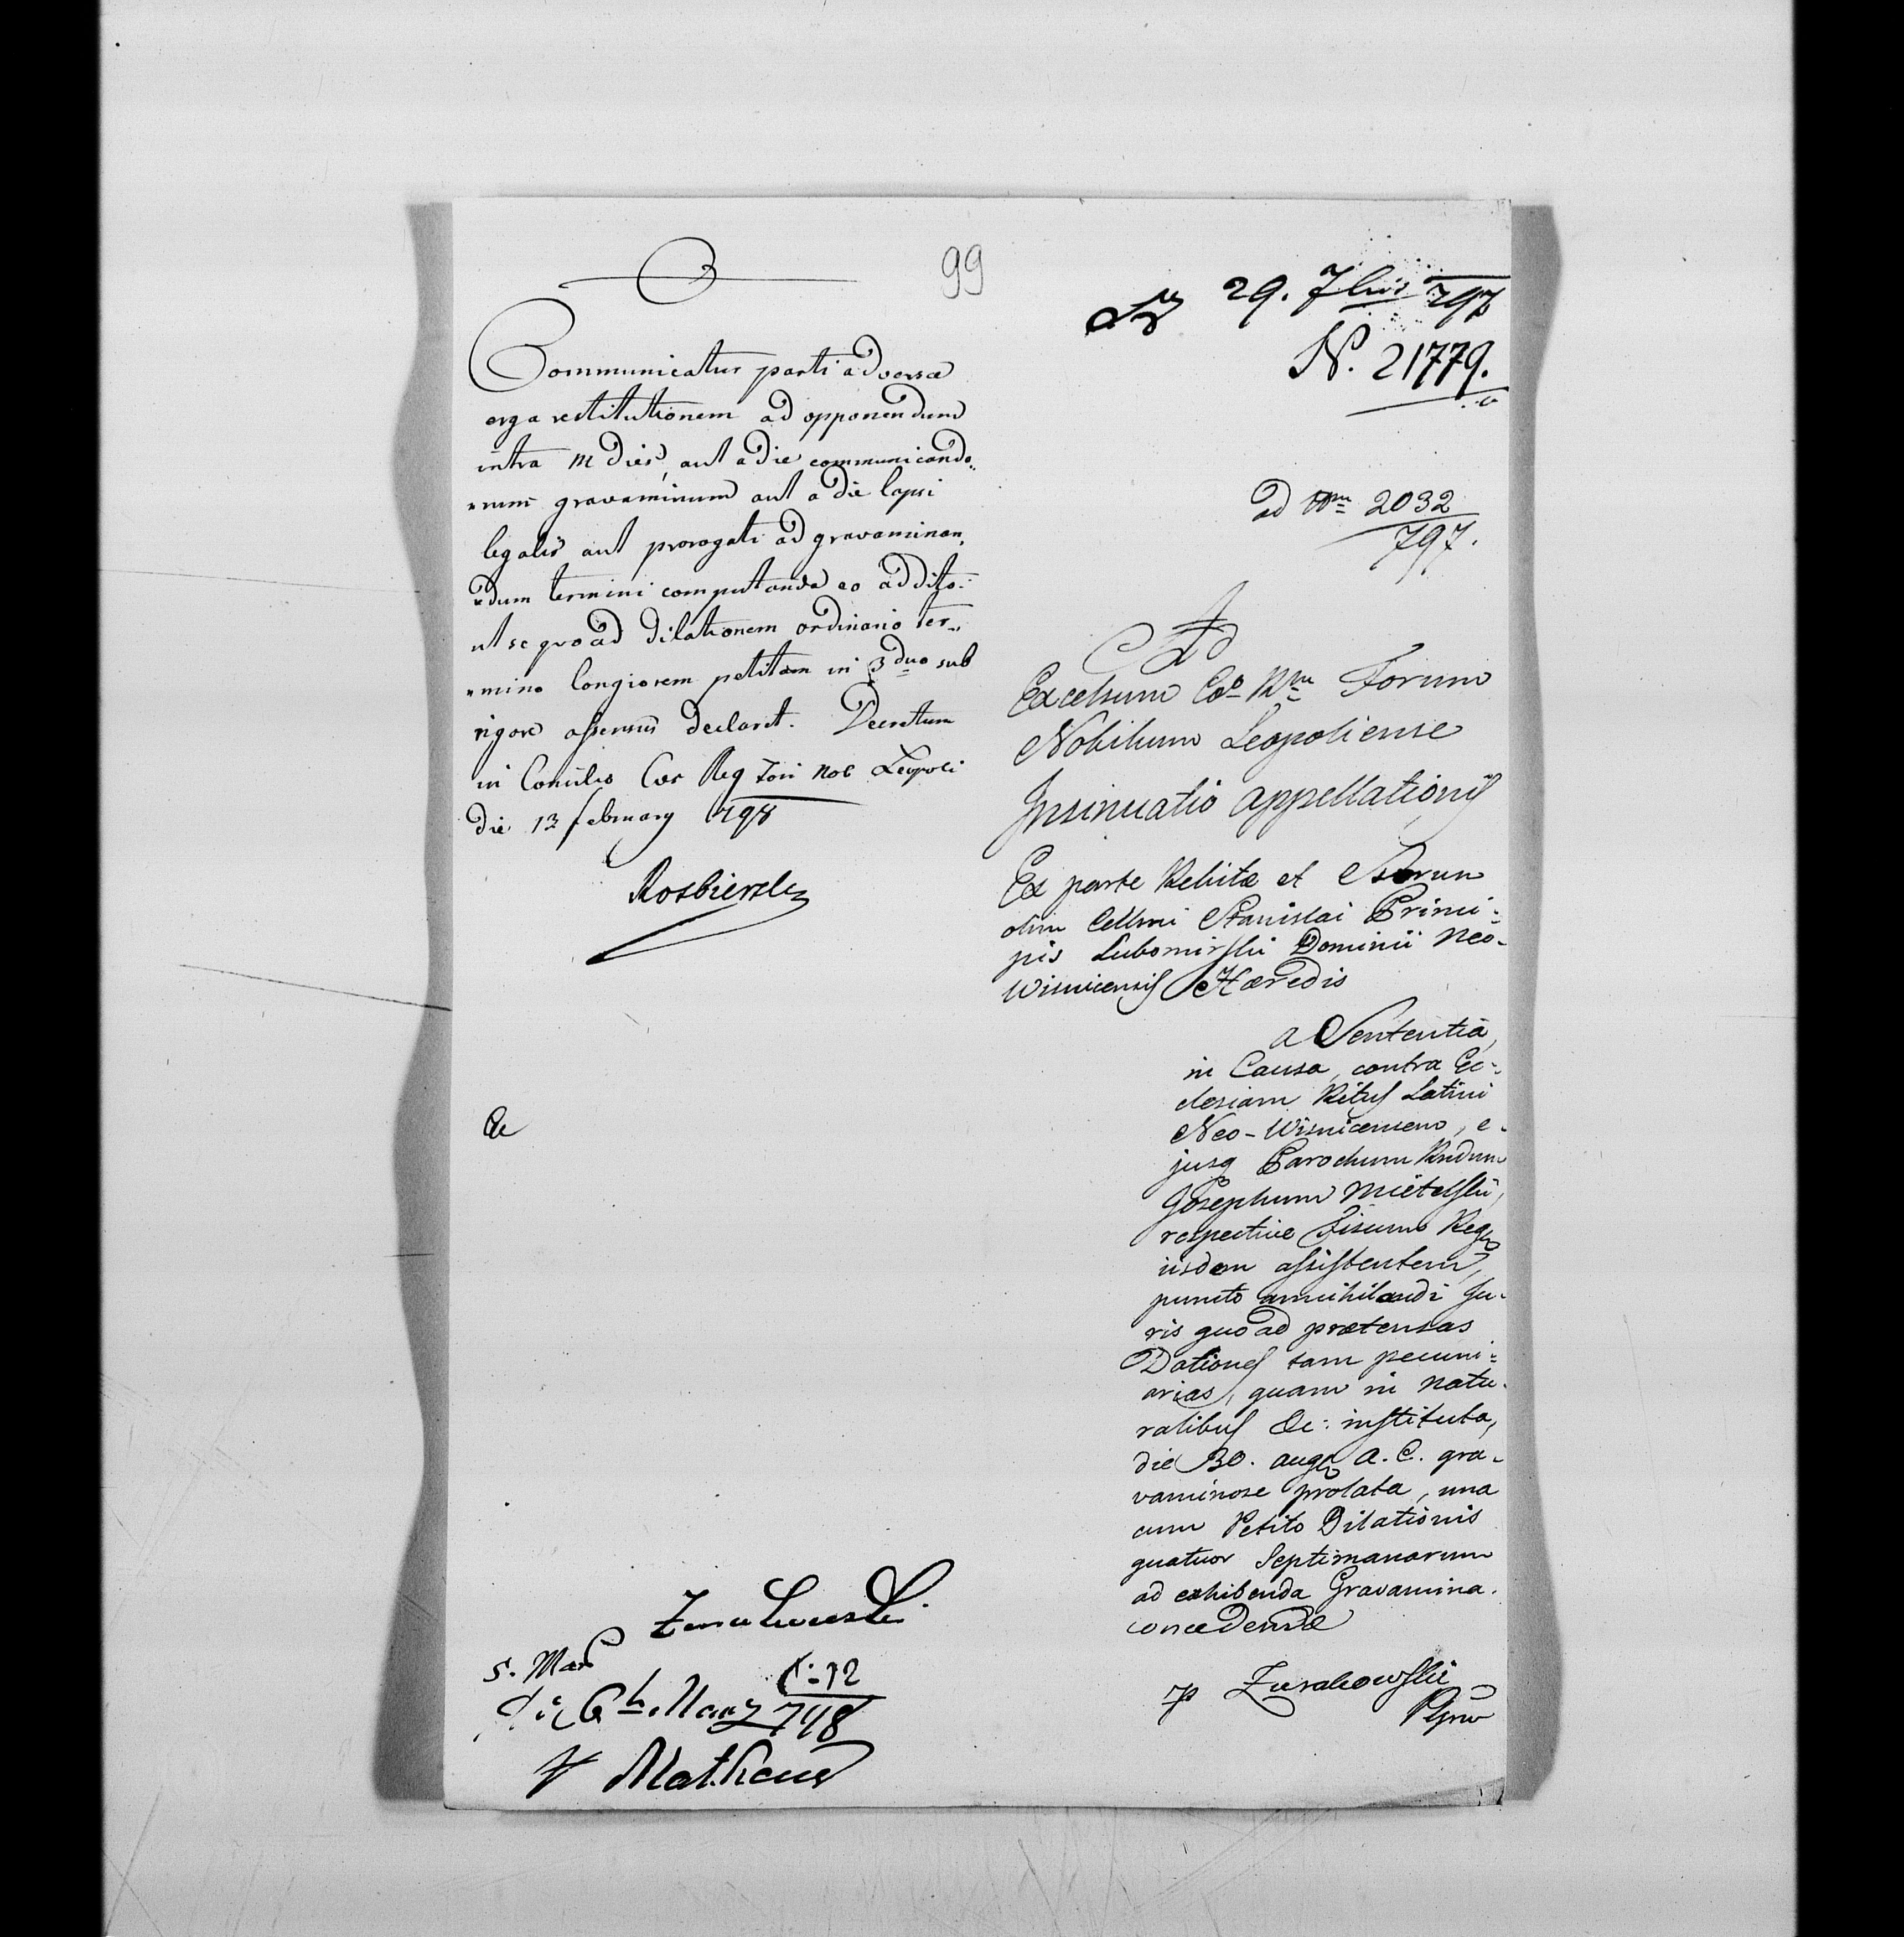 99
Communicatur parti adversæ
erga restitutionem ad opponendum
intra m dies, aut a die communicando„
„rum gravaminum aut a die lapsi
legalis aut prorogati ad gravaminan„
„dum termini computanda eo addito:
ut se quoad dilationem ordinario ter„
„mino longiorem petitam in 3duo sub
rigore assensus declaret. Decretum
in Consilio Cæs Reg Fori Nob Leopoli
die 13 february 798
&c
5. Mar
798
Matheus
29. 7bris 797
N. 21779.
ad Nrm 2032
797.
Ad
Excelsum Cæo Rgm Forum
Nobilium Leopoliense
Insinuatio Appellationis
Ex parte Relictæ et
olim Cellmi Stanislai Princi:
pis Lubomirski Dominii Neo-
Wisnicensis Hæredis
a Sententia,
in Causa, contra Ec-
clesiam Ritus Latini
Neo-Wisnicensem, e-
jusq Parochum Rndum
Josephum Mietelski,
respective Fiscum Reg
iisdem assistentem,
puncto annihilandi Ju-
ris quoad prætensas
Dationes tam pecuni:
arias, quam in natu-
ralibus &c: instituta,
die 30. aug a. C. gra-
vaminose prolata, una
cum Petito Dilationis
quatuor Septimanarum
ad exhibenda Gravamina.
concedendæ
Zurakowski